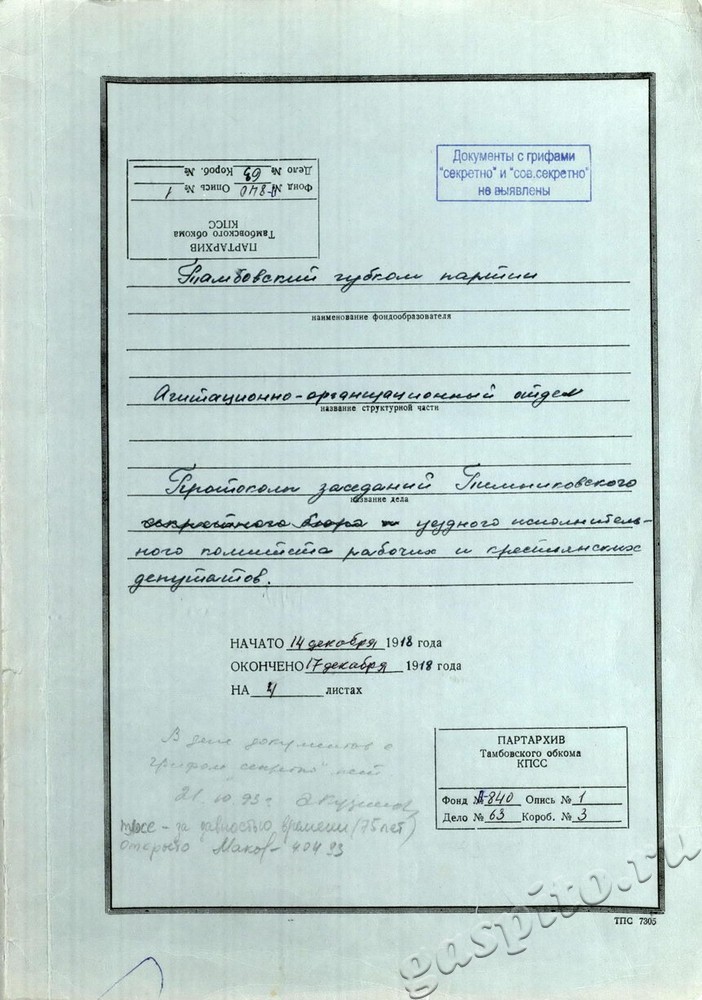 Документы с грифами
"секретно" и "сов.секретно"
не выявлены
ПАРТАРХИВ
Тамбовского обкома
КПСС
Фонд № П-840 Опись № 1
Дело № 63 Короб. №
Тамбовский губком партии
наименование фондообразователя
Агитационно-организационный отдел
название структурной части
Протоколы заседаний Темниковского
название дела
уездного исполнитель-
ного комитета рабочих и крестьянских
депутатов.
НАЧАТО 14 декабря 1918 года
ОКОНЧЕНО 17 декабря 1918 года
НА 4 листах
В деле документов с
грифом "секретно" нет
21.10.93г.
за давностью времени (75 лет)
открыто
ПАРТАРХИВ
Тамбовского обкома
КПСС
Фонд № П-840 Опись № 1
Дело № 63 Короб. № 3
ТПС 7305
gaspito.ru